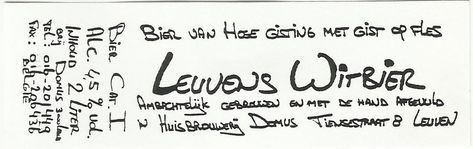 Bier Cat I
Alc. 4,5 % vol.
Inhoud 2 liter
Brij Domus 3000 Leuven
Tel: 016-201449
Fax: 016-206436
BELGIE
Bier van Hoge gisting met gist op fles
Leuvens Witbier
Ambachtelijk gebrouwen en met de hand afgevuld
in Huisbrouwerij Domus Tiensestraat 8 Leuven